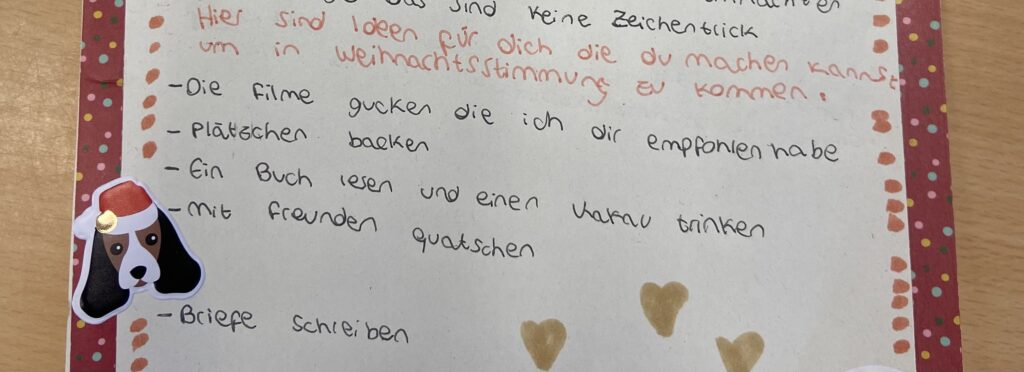 das sind keine Zeichentrick
Hier sind Ideen für dich die du machen kannst
um in Weihnachtsstimmung zu kommen.
-Die Filme gucken die ich dir empfohlen habe
- Plätschen backen
- Ein Buch lesen und einen Kakau trinken
- Mit Freunden quatschen
- Briefe schreiben